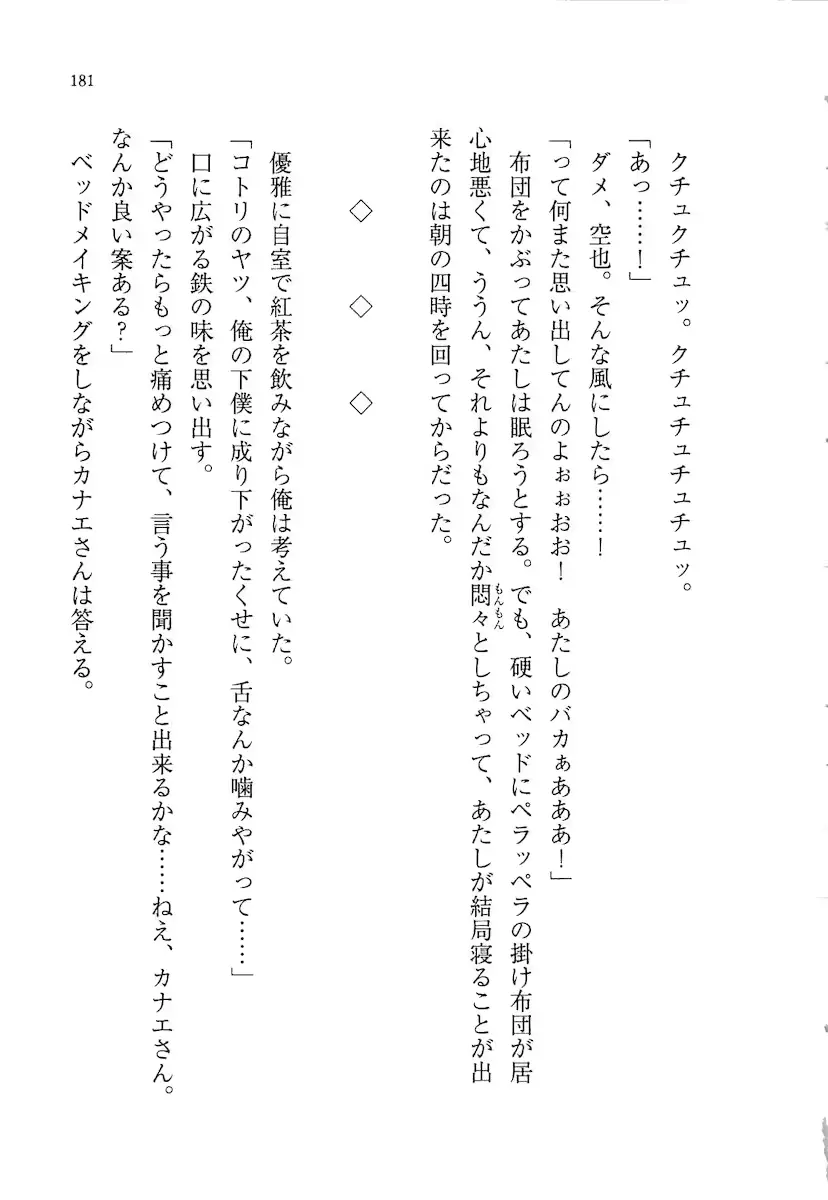 181
クチュクチュッ。クチュチュチュチュッ。
「あっ……！」
ダメ、空也。そんな風にしたら……！
「って何また思い出してんのよぉぉおお！　あたしのバカぁあああ！」
布団をかぶってあたしは眠ろうとする。でも、硬いベッドにペラッペラの掛け布団が居
心地悪くて、ううん、それよりもなんだか悶々としちゃって、あたしが結局寝ることが出
もんもん
来たのは朝の四時を回ってからだった。
◇　◇　◇
優雅に自室で紅茶を飲みながら俺は考えていた。
「コトリのヤツ、俺の下僕に成り下がったくせに、舌なんか噛みやがって……」
口に広がる鉄の味を思い出す。
「どうやったらもっと痛めつけて、言う事を聞かすこと出来るかな……ねえ、カナエさん。
なんか良い案ある？」
ベッドメイキングをしながらカナエさんは答える。